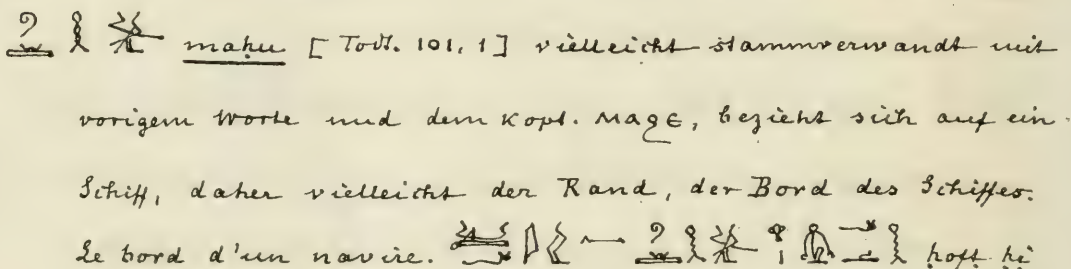 mahu [Todt. 101, 1] vielleicht stammverwandt mit
vorigem Worte und dem Kopt. ⲙⲁϩⲉ, bezieht sich auf ein
Schiff, daher vielleicht der Rand, der Bord des Schiffes.
Le bord d'un navire. ḥoft ḥi